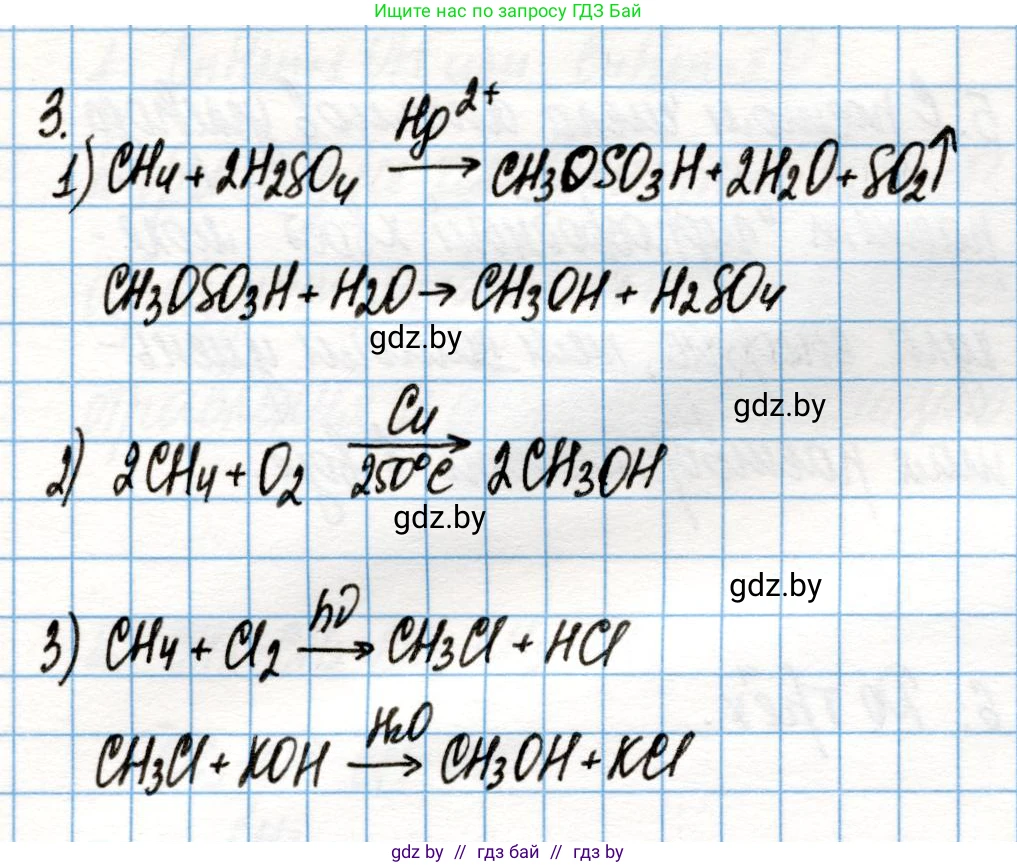 Ищите нас по запросу ГДЗ Бай
3.
1) CH₄ + 2H₂SO₄ —Hg²⁺→ CH₃OSO₃H + 2H₂O + SO₂↑
CH₃OSO₃H + H₂O → CH₃OH + H₂SO₄
gdz.by
gdz.by
2) 2CH₄ + O₂ —Cu, 250°C→ 2CH₃OH
gdz.by
gdz.by
3) CH₄ + Cl₂ —hν→ CH₃Cl + HCl
CH₃Cl + KOH —H₂O→ CH₃OH + KCl
gdz.by // гдз бай // гдз by